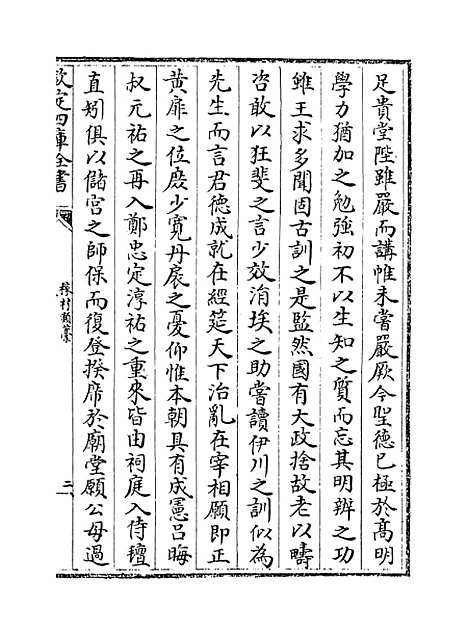 足貴堂陛雖嚴而講帷未嘗嚴厥今聖德已極於髙明
學力猶加之勉強初不以生知之質而忘其明辨之功
雖王求多聞固古訓之是監然國有大政捨故老以疇
咨敢以狂斐之言少效涓埃之助嘗讀伊川之訓似為
先生而言君德成就在經筵天下治亂在宰相願即正
黄扉之位庶少寛丹扆之憂仰惟本朝具有成憲吕晦
叔元祐之再入鄭忠定淳祐之重來皆由祠庭入侍
直矧俱以儲宫之師保而復登揆席於廟堂願公毋過
欽定四庫全書
稼村類藁
二